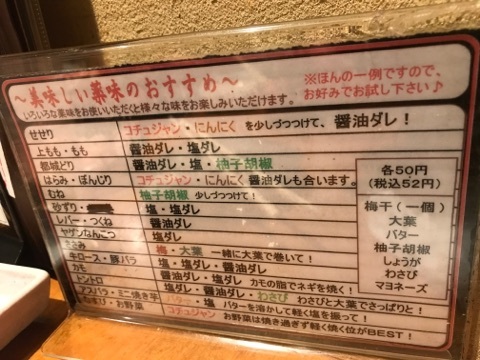 ～美味しい薬味のおすすめ～
いろいろな薬味をお使いいただくと様々な味をお楽しみいただけます。
※ほんの一例ですので、
お好みでお試し下さい♪
せせり コチュジャン・にんにく を少しづつつけて、醤油ダレ！
上もも・もも 醤油ダレ・塩ダレ
都城どり 醤油ダレ・塩・柚子胡椒
はらみ・ぼんじり コチュジャン・にんにく 醤油ダレも合います。
むね 柚子胡椒 少しづつつけて！
砂ずり・ 塩・塩ダレ
レバー・つくね 醤油ダレ・塩ダレ
ヤゲンなんこつ 塩ダレ
ささみ 梅・大葉 一緒に大葉で巻いて！
牛ロース・豚バラ 塩・醤油ダレ・塩ダレ
カモ 醤油ダレ・塩 カモの脂でネギを焼く！
トントロ 塩ダレ・醤油ダレ・わさび わさびと大葉でさっぱりと！
・ミニ焼き芋 バター・塩 バターを溶かして軽く塩を振って！
・お野菜 コチュジャン お野菜は焼き過ぎず軽く焼く位がBEST！
各50円
(税込52円)
梅干（一個）
大葉
バター
柚子胡椒
しょうが
わさび
マヨネーズ